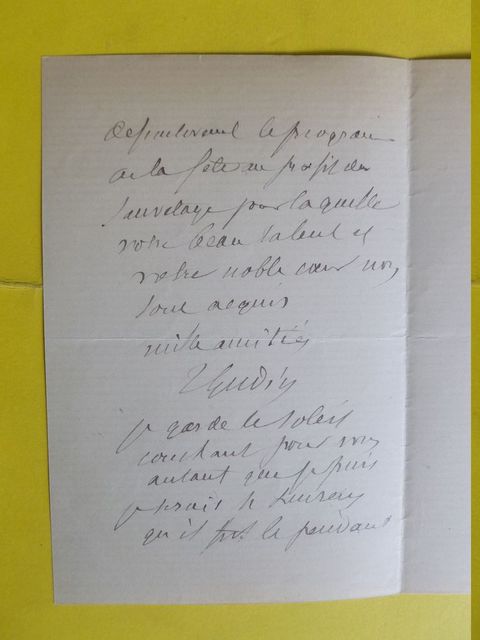 le program
de la fête au profit du
sauvetage pour laquelle
votre beau talent et
votre noble cœur nous
sont acquis
mille amitiés
TGudin
je garde le soleil
couchant pour vous
autant que je puis
je serais heureux
qu'il fut le pendant